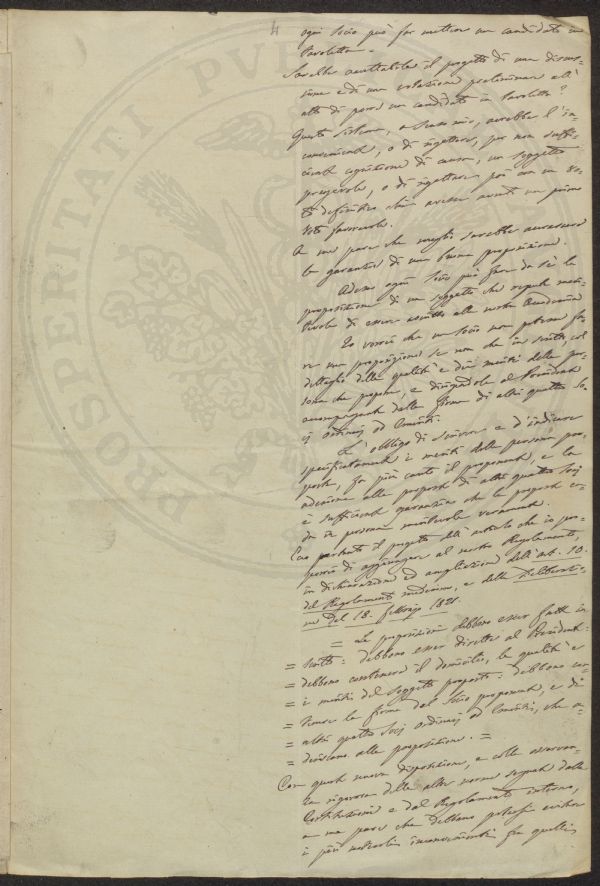 4
ogni Socio può far metter un candidato in
ballottazione.
Sarebbe accettabile il progetto di una discus-
sione e di una votazione preliminare all'
atto di porre un candidato in ballotta?
Questo sistema, a senso mio, avrebbe l'in-
conveniente, o di rigettare, per non suffi-
ciente cognizione di causa, un soggetto
pregevole, o di rigettare poi con un vo-
to definitivo chi avesse avuto un primo
voto favorevole.
A me pare che meglio sarebbe
la garanzia di una buona proposizione.
Adesso ogni Socio può fare da sè la
proposizione di un soggetto che reputi meri-
tevole di essere ascritto alla nostra Accademia
Io vorrei che un Socio non potesse fa-
re una proposizione se non che in scritto, col
dettaglio delle qualità e dei meriti della per-
sona che propone, e dirigendola al Presidente
accompagnata dalla firma di altri quattro So-
cj ordinarj od emeriti.
L'obbligo di scrivere e d'indicare
specificatamente i meriti della persona pro-
posta, fa più cauto il proponente, e la
adesione alla proposta di altri quattro Socj
è sufficiente garanzia che la proposta ca-
da in persona meritevole veramente.
Ecco pertanto il progetto dell'articolo che io pro-
porrei di aggiungere al nostro Regolamento,
in dichiarazione ed ampliazione dell'art. 10.
del Regolamento medesimo, e della Delibera-
ne del 18. febbrajo 1821.
= Le proposizioni debbono esser fatte in
= scritto: debbono esser dirette al Presidente:
= debbono contenere il domicilio, le qualità e
= i meriti del soggetto proposto: debbono con-
= tenere la firma del Socio proponente, e di
= altri quattro Socj ordinarj od emeriti, che a-
= deriscono alla proposizione. =
Con questa nuova disposizione, e colla osservan-
za rigorosa delle altre norme segnate dalle
Costituzioni e dal Regolamento interno,
a me pare che debbano potersi evitare
i più notevoli inconvenienti fra quelli